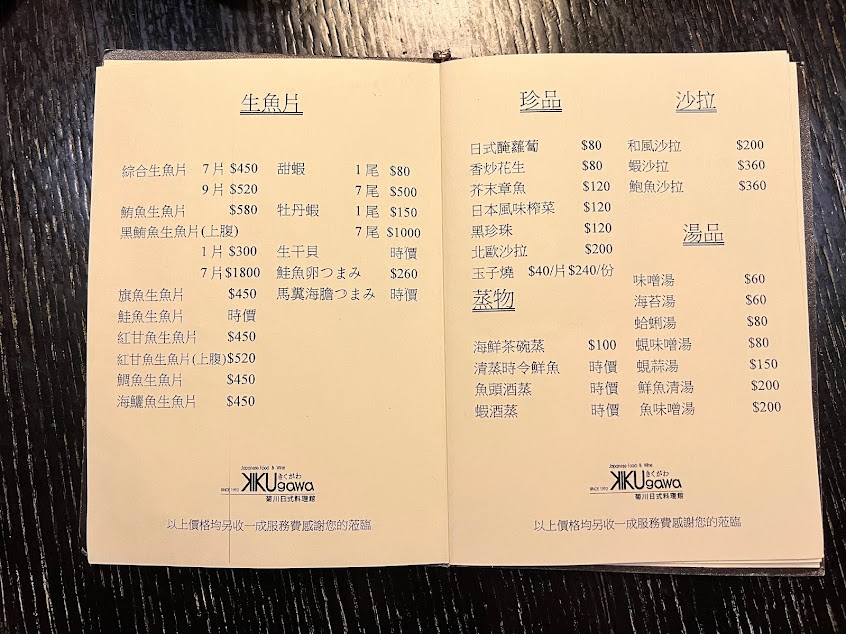 生魚片
綜合生魚片 7片 $450
9片 $520
鮪魚生魚片 $580
黑鮪魚生魚片(上腹)
1片 $300
7片 $1800
旗魚生魚片 $450
鮭魚生魚片 時價
紅甘魚生魚片 $450
紅甘魚生魚片(上腹) $520
鯛魚生魚片 $450
海鱺魚生魚片 $450
甜蝦 1尾 $80
7尾 $500
牡丹蝦 1尾 $150
7尾 $1000
生干貝 時價
鮭魚卵つまみ $260
馬糞海膽つまみ 時價
Japanese Food & Wine
きくがわ
SINCE 1992 KIKUgawa
菊川日式料理館
以上價格均另收一成服務費感謝您的蒞臨
珍品
日式醃蘿蔔 $80
香炒花生 $80
芥末章魚 $120
日本風味榨菜 $120
黑珍珠 $120
北歐沙拉 $200
玉子燒 $40/片 $240/份
蒸物
海鮮茶碗蒸 $100
清蒸時令鮮魚 時價
魚頭酒蒸 時價
蝦酒蒸 時價
沙拉
和風沙拉 $200
蝦沙拉 $360
鮑魚沙拉 $360
湯品
味噌湯 $60
海苔湯 $60
蛤蜊湯 $80
蜆味噌湯 $80
蜆蒜湯 $150
鮮魚清湯 $200
魚味噌湯 $200
Japanese Food & Wine
きくがわ
SINCE 1992 KIKUgawa
菊川日式料理館
以上價格均另收一成服務費感謝您的蒞臨